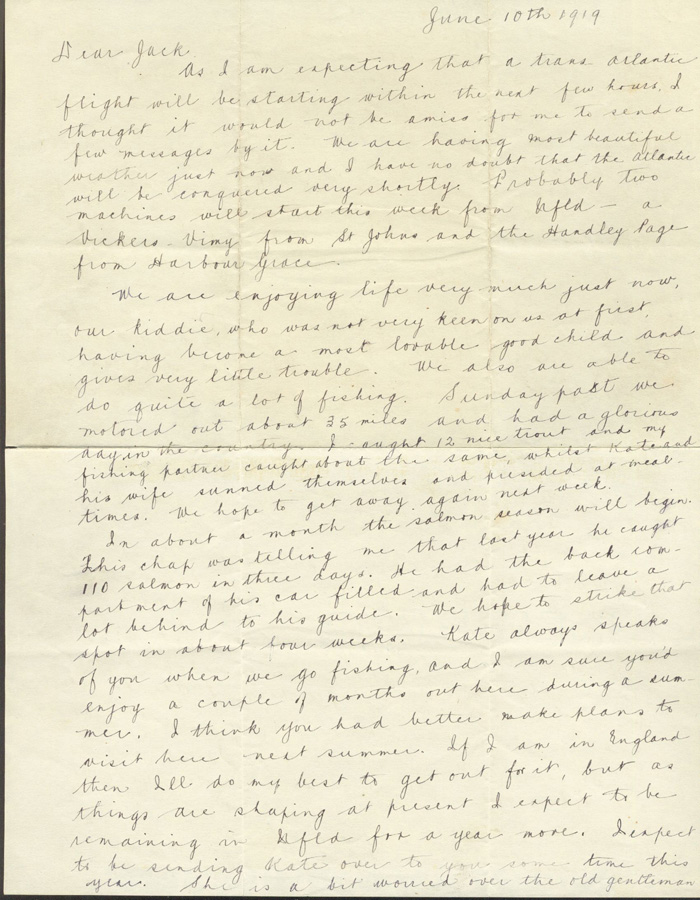 June 10th 1919
Dear Jack
As I am expecting that a trans atlantic
flight will be starting within the next few hours, I
thought it would not be amiss for me to send a
few messages by it. We are having most beautiful
weather just now and I have no doubt that the Atlantic
will be conquered very shortly. Probably two
machines will start this week from Nfld - a
Vickers-Vimy from St Johns and the Handley Page
from Harbour Grace.
We are enjoying life very much just now,
our kiddie, who was not very keen on us at first,
having become a most lovable good child and
gives very little trouble. We also are able to
do quite a lot of fishing. Sunday past we
motored out about 35 miles and had a glorious
day in the country. I caught 12 nice trout and my
fishing partner caught about the same, whilst Kate and
his wife sunned themselves and presided at meal-
times. We hope to get away again next week.
In about a month the salmon season will begin.
This chap was telling me that last year he caught
110 salmon in three days. He had the back com-
partment of his car filled and had to leave a
lot behind to his guide. We hope to strike that
spot in about four weeks. Kate always speaks
of you when we go fishing, and I am sure you'd
enjoy a couple of months out here during a sum-
mer. I think you had better make plans to
visit here next summer. If I am in England
then I'll do my best to get out for it, but as
things are shaping at present I expect to be
remaining in Nfld for a year more. I expect
to be sending Kate over to you some time this
year. She is a bit worried over the old gentleman